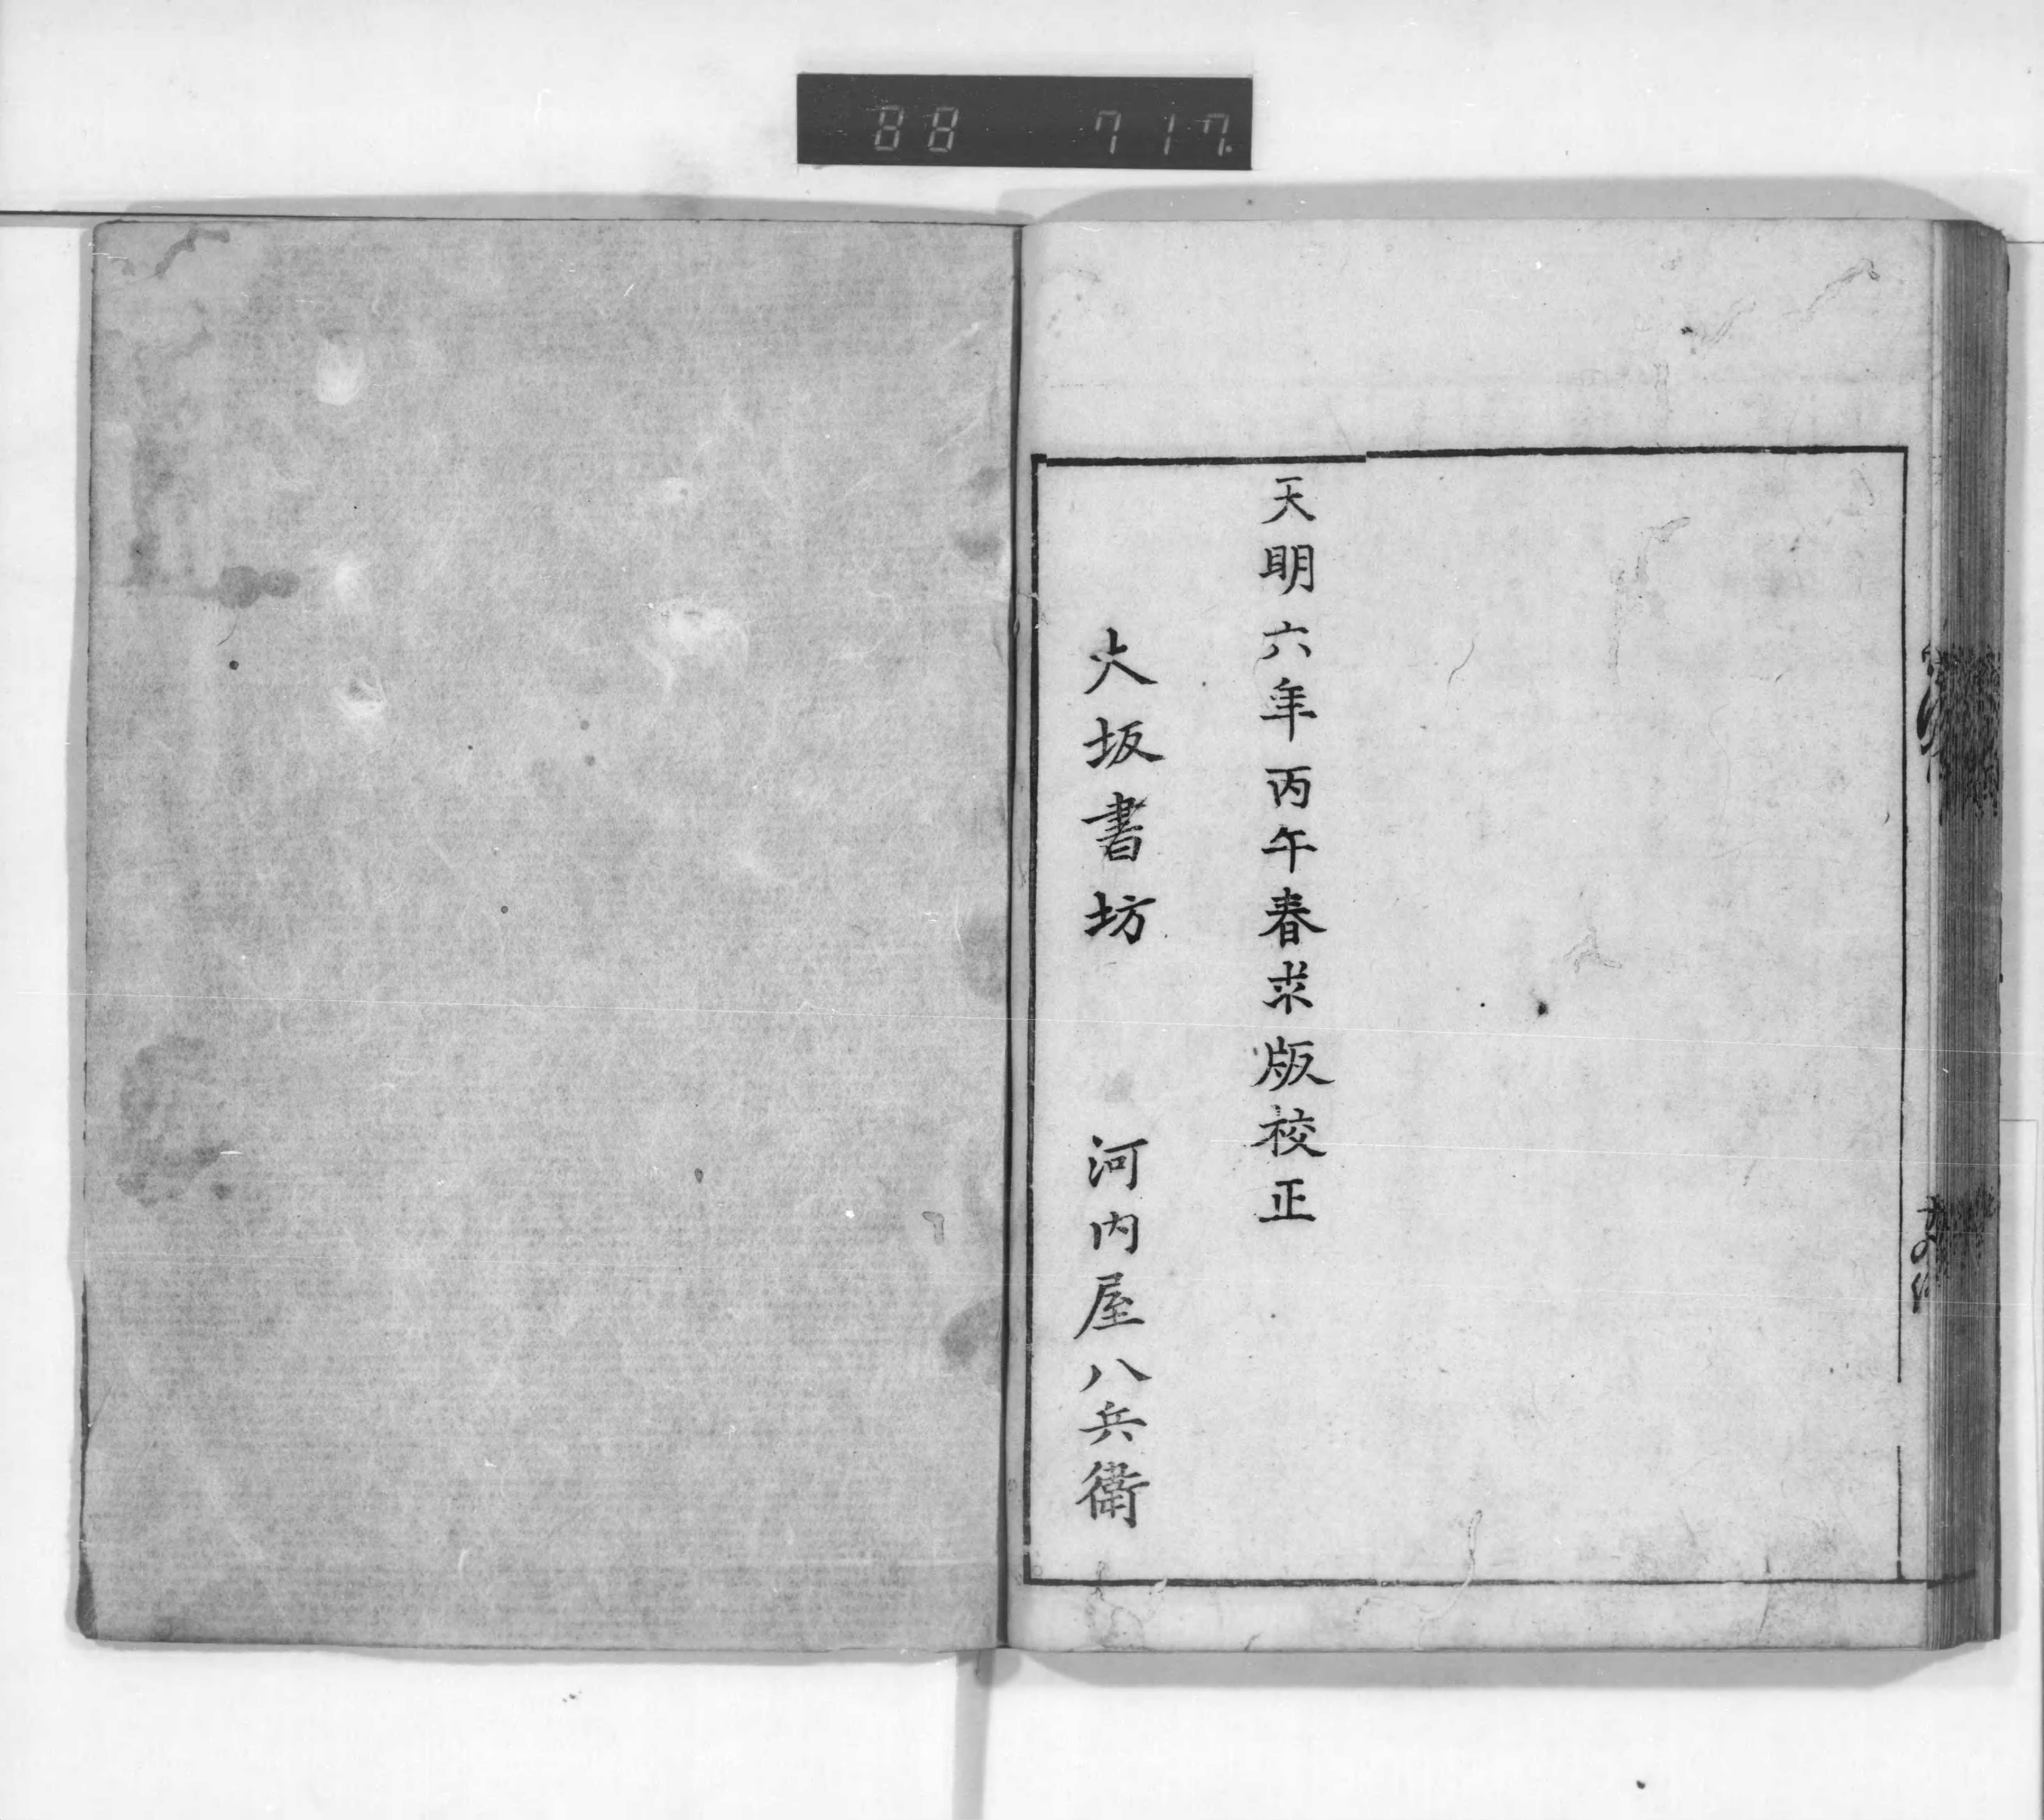 88 717.
天明六年丙午春求版校正
大坂書坊 河内屋八兵衛